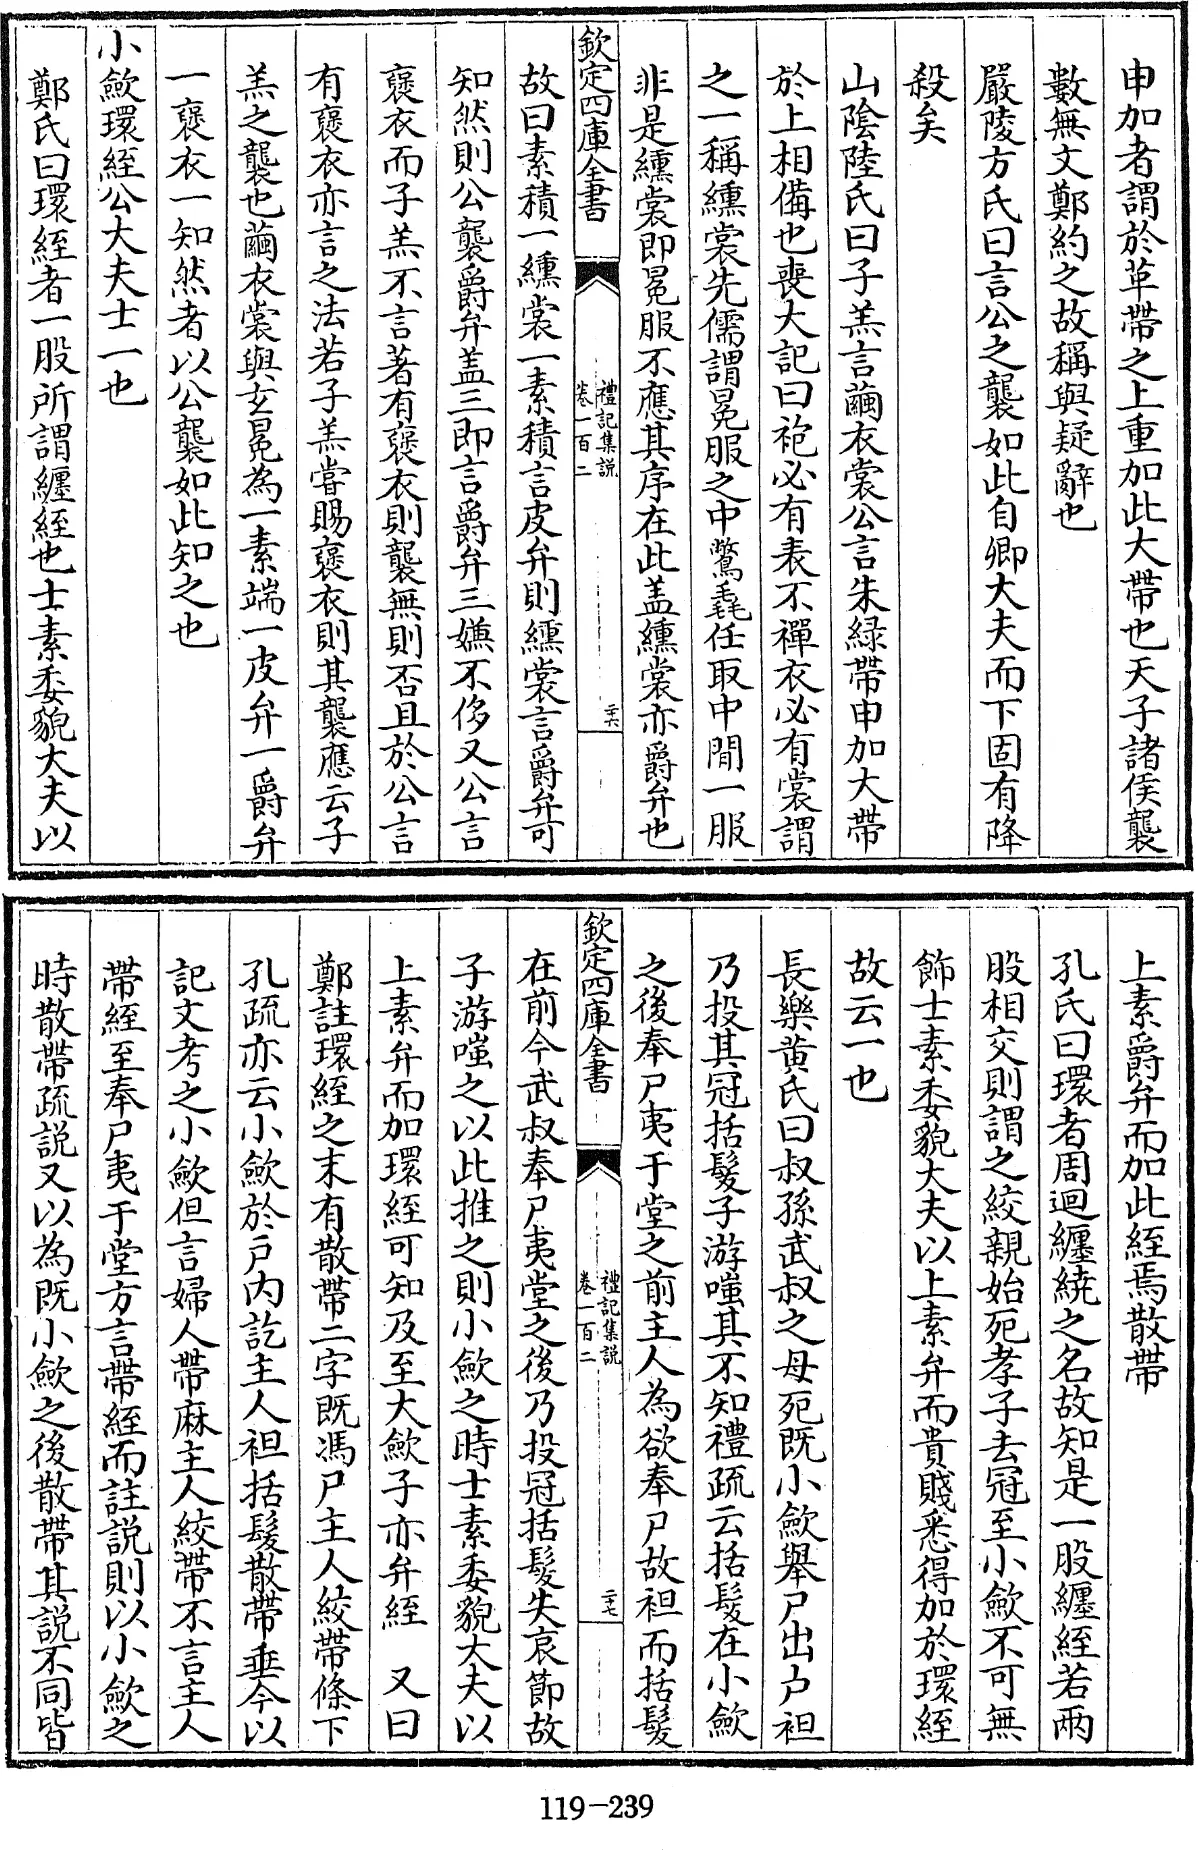 申加者謂於革帶之上重加此大帶也天子諸侯襲
數無文鄭約之故稱與疑辭也
嚴陵方氏曰言公之襲如此自卿大夫而下固有降
殺矣
山陰陸氏曰子羔言繭衣裳公言朱緑帶申加大帶
於上相備也喪大記曰袍必有表不禪衣必有裳謂
之一稱纁裳先儒謂冕服之中鷩毳任取中間一服
非是纁裳即冕服不應其序在此盖纁裳亦爵弁也
欽定四庫全書
禮記集説
卷一百二
二十六
故曰素積一纁裳一素積言皮弁則纁裳言爵弁可
知然則公襲爵弁盖三即言爵弁三嫌不侈又公言
襃衣而子羔不言著有襃衣則襲無則否且於公言
有襃衣亦言之法若子羔嘗賜襃衣則其襲應云子
羔之襲也繭衣裳與玄冕為一素端一皮弁一爵弁
一襃衣一知然者以公襲如此知之也
小歛環絰公大夫士一也
鄭氏曰環絰者一股所謂纒絰也士素委貌大夫以
上素爵弁而加此絰焉散帶
孔氏曰環者周迴纒繞之名故知是一股纒絰若兩
股相交則謂之絞親始死孝子去冠至小歛不可無
飾士素委貌大夫以上素弁而貴賤悉得加於環絰
故云一也
長樂黄氏曰叔孫武叔之母死既小歛舉尸出户袒
乃投其冠括髮子游嗤其不知禮疏云括髮在小歛
之後奉尸夷于堂之前主人為欲奉尸故袒而括髮
欽定四庫全書
禮記集説
卷一百二
二十七
在前今武叔奉尸夷堂之後乃投冠括髮失哀節故
子游嗤之以此推之則小歛之時士素委貌大夫以
上素弁而加環絰可知及至大歛子亦弁絰　又曰
鄭註環絰之末有散帶二字既馮尸主人絞帶條下
孔疏亦云小歛於户内訖主人袒括髮散帶垂今以
記文考之小歛但言婦人帶麻主人絞帶不言主人
帶絰至奉尸夷于堂方言帶絰而註説則以小歛之
時散帶疏説又以為既小歛之後散帶其説不同皆
119-239